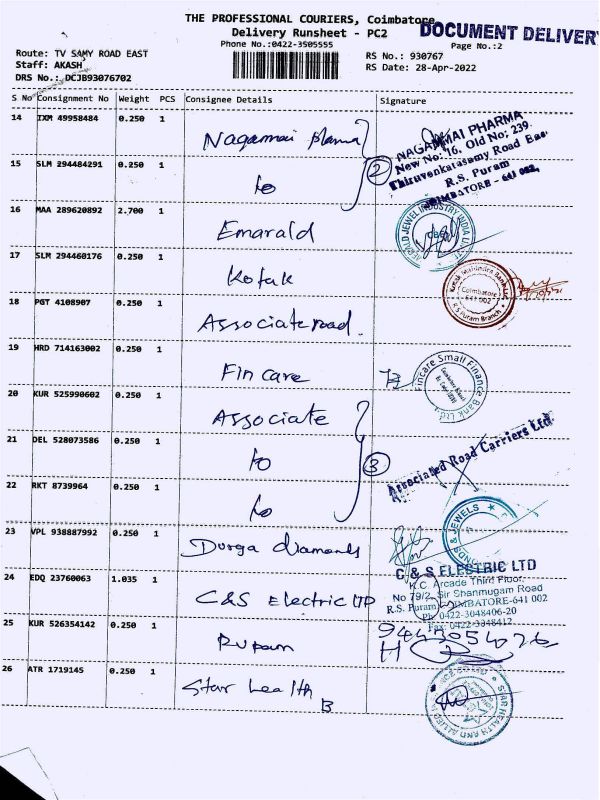 THE PROFESSIONAL COURIERS, Coimbatore
DOCUMENT DELIVERY
Delivery Runsheet - PC2
Phone No.:0422-3505555
Page No.:2
Route: TV SAMY ROAD EAST
RS No.: 930767
Staff: AKASH
RS Date: 28-Apr-2022
DRS No.: DCJB93076702
S No Consignment No Weight PCS Consignee Details Signature
14 IXM 49958484 0.250 1 Nagammai pharma
NAGAMMAI PHARMA
New No: 16, Old No: 239.
Thiruvenkatasamy Road East
R.S. Puram
COIMBATORE - 641 002.
15 SLM 294484291 0.250 1 to
2
16 MAA 289620892 2.700 1 Emarald
EMERALD JEWEL INDUSTRY INDIA LIMITED
CBE
17 SLM 294460176 0.250 1 Kotak
Kotak Mahindra Bank Ltd
Coimbatore
641 002
R.S Puram Branch
18 PGT 4108907 0.250 1 Associate road.
19 HRD 714163002 0.250 1 Fin care
Fincare Small Finance Bank Ltd
20 KUR 525990602 0.250 1 Associate
21 DEL 528073586 0.250 1 to
3
Associated Road Carriers Ltd
22 RKT 8739964 0.250 1 to
23 VPL 938887992 0.250 1 Durga diamonds
& JEWELS
24 EDQ 23760063 1.035 1 C&S Electric LTD
C & S ELECTRIC LTD
K.C. Arcade Third Floor,
No 79/2, Sir Shanmugam Road
R.S. Puram, COIMBATORE-641 002
Ph: 0422-3048406-20
Fax: 0422-3048412
25 KUR 526354142 0.250 1 Rupam
26 ATR 1719145 0.250 1 Star health
STAR HEALTH AND ALLIED